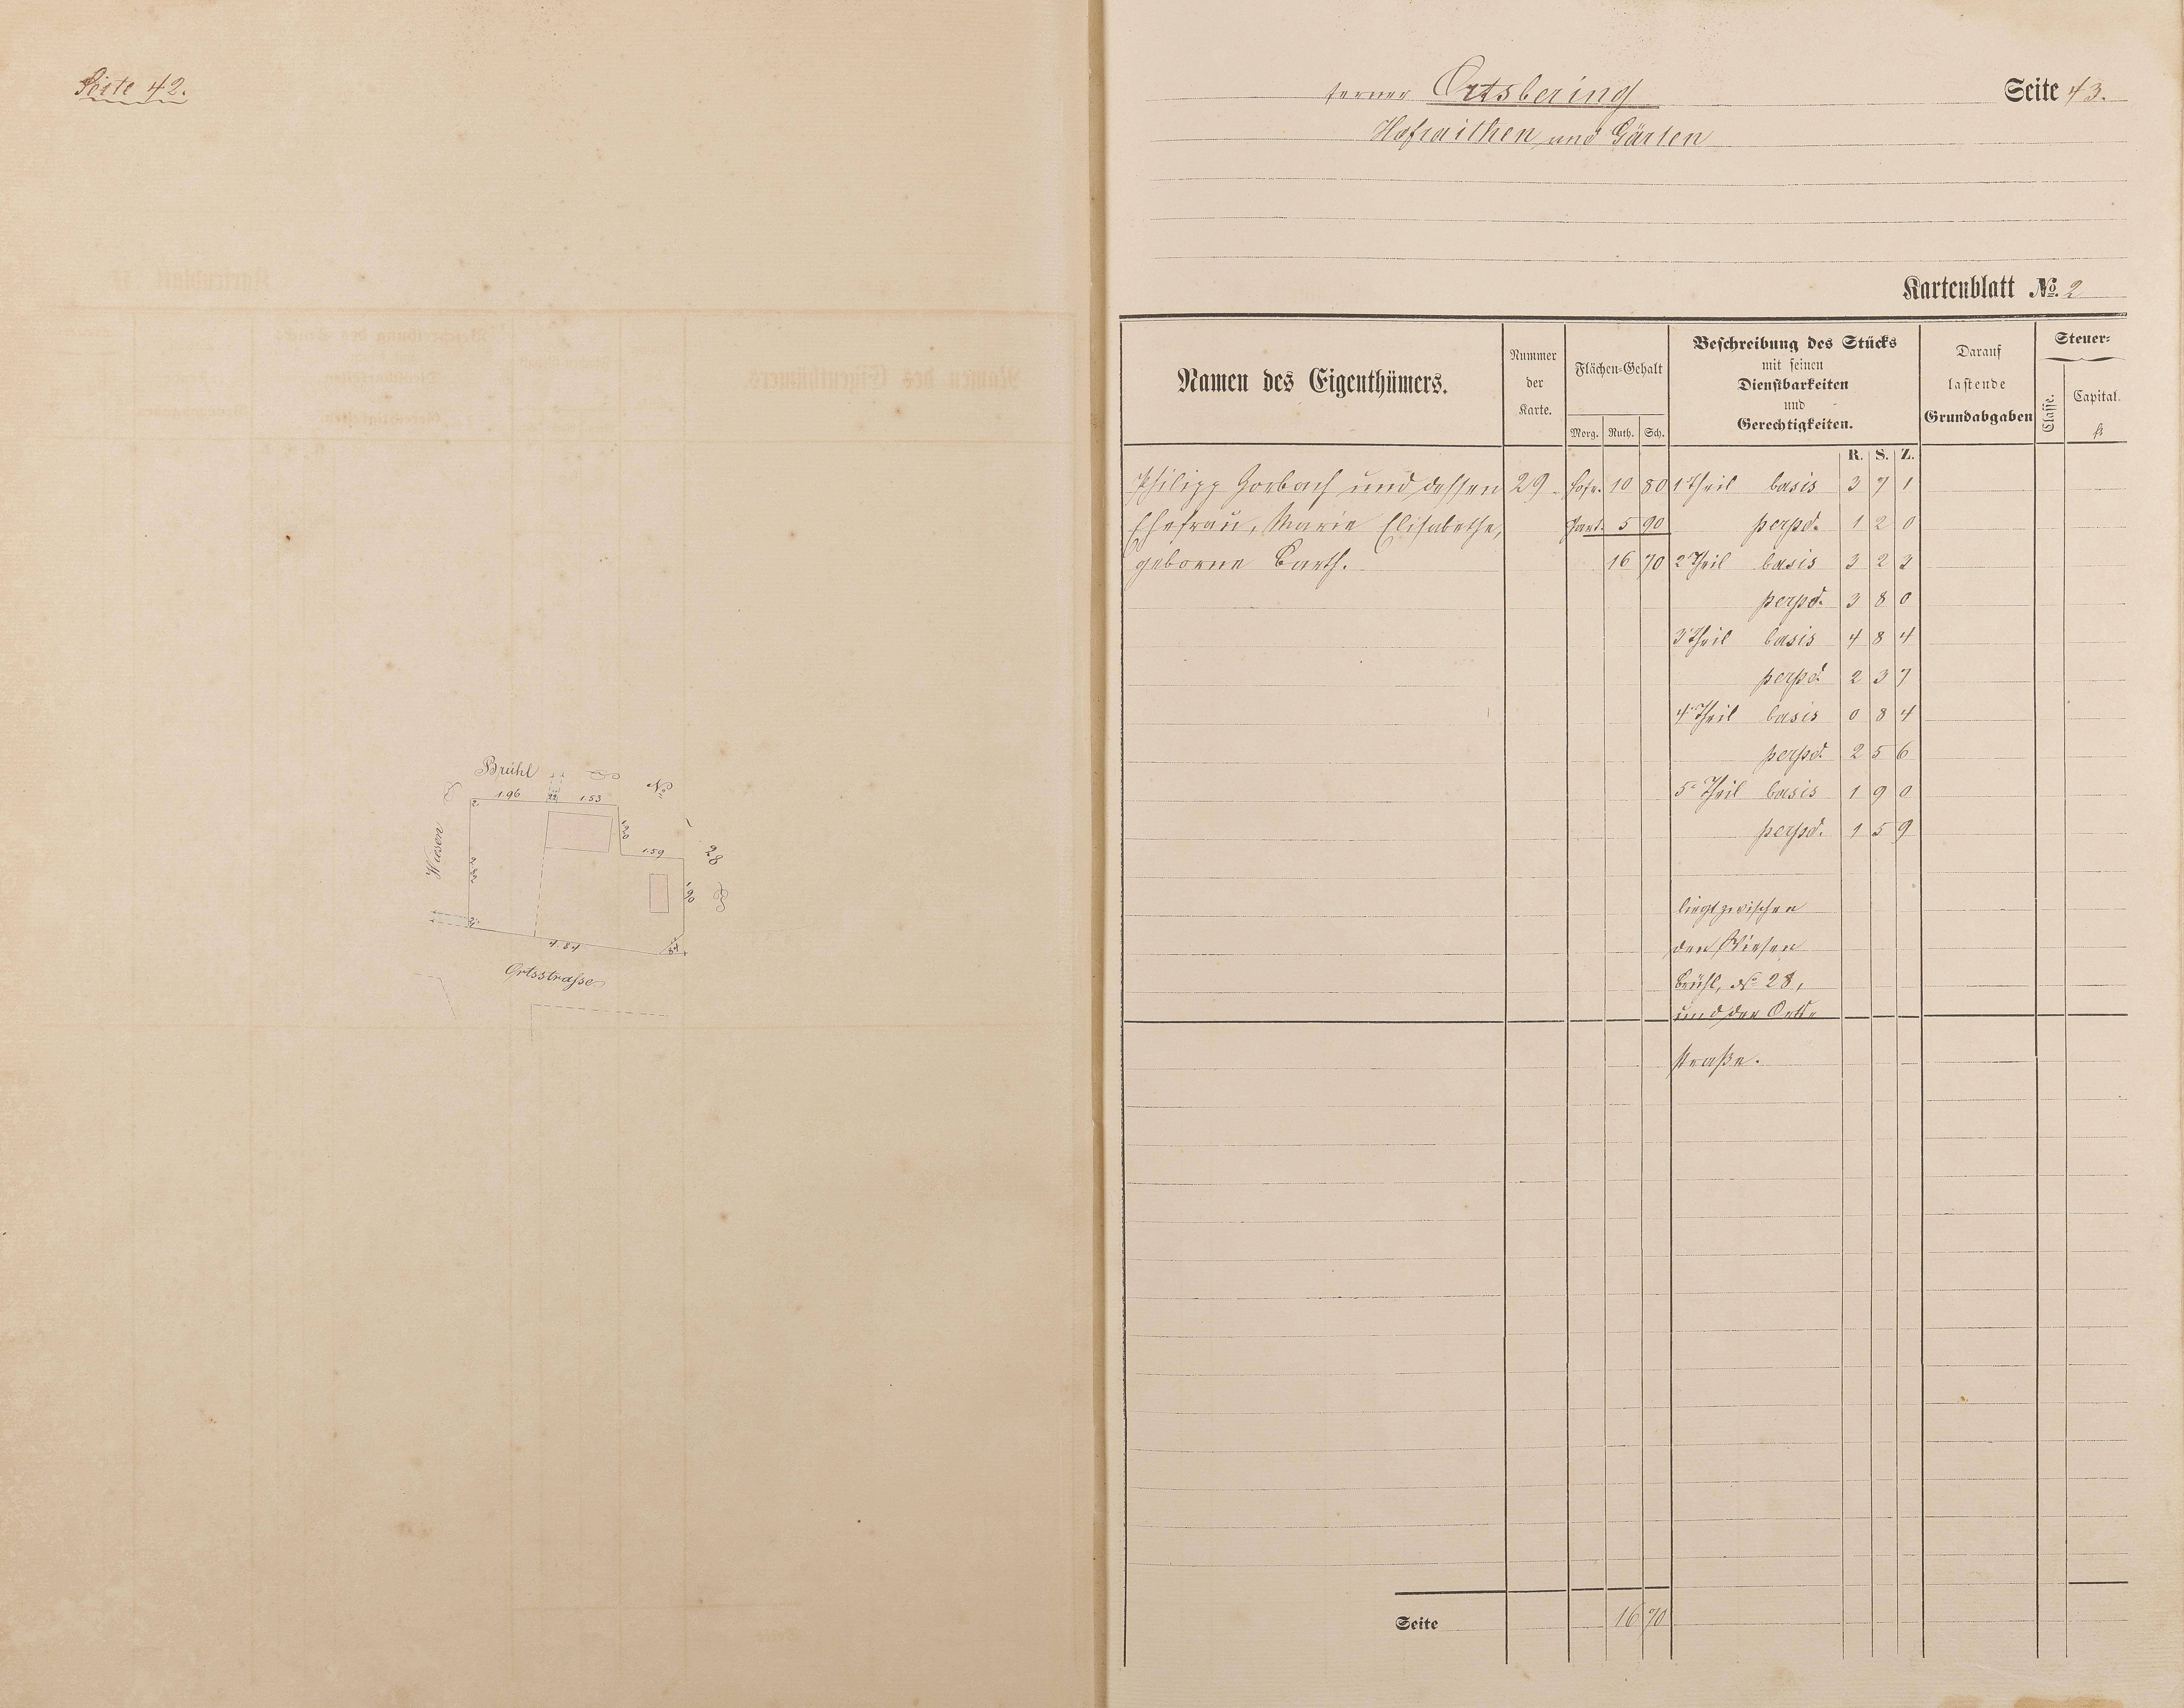 Seite 42.
Brühl
1.96
1.53
No
Wiesen
1.20
1.59
28
1.90
4.84
Ortsstrasse
ferner Ortsbering
Seite 43.
Hofraithen und Gärten
Kartenblatt No. 2
Namen des Eigenthümers.
Nummer der Karte.
Flächen-Gehalt
Morg. Ruth. Sch.
Beschreibung des Stücks
mit seinen
Dienstbarkeiten
und
Gerechtigkeiten.
Darauf
lastende
Grundabgaben
Steuer-
Classe.
Capital.
fl
R. S. Z.
Philipp Horbach und dessen 29. Hofr. 10 80 1 Theil basis 3 7 1
Ehefrau, Marie Elisabethe, Gart. 5 90 perpd. 1 2 0
geborne Barth. 16 70 2 Theil basis 3 2 2
perpd. 3 8 0
3 Theil basis 4 8 4
perpd. 2 3 7
4 Theil basis 0 8 4
perpd. 2 5 6
5 Theil basis 1 9 0
perpd. 1 5 9
liegt zwischen
den Wiesen
Brühl, No 28,
und der Orts-
straße.
Seite 16 70